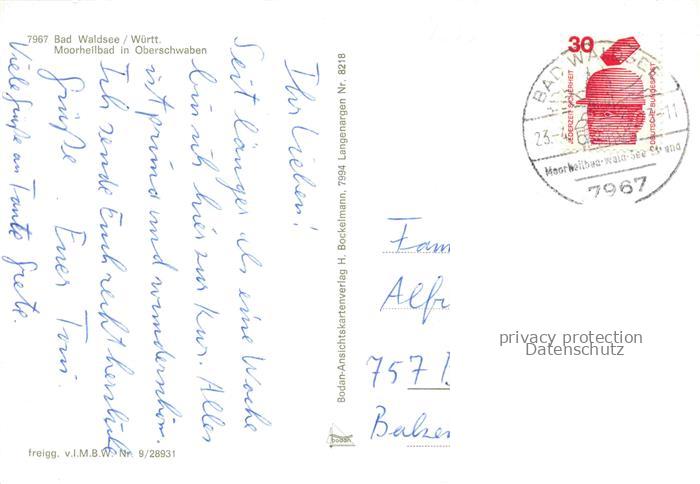 7967 Bad Waldsee / Württ.
Moorheilbad in Oberschwaben
Ihr Lieben!
Seit länger als eine Woche
bin ich hier zur Kur. Alles
ist prima und wunderschön.
Ich sende Euch recht herzliche
Grüße. Euer Toni.
Viele Grüße an Tante Grete.
freigg. v.I.M.B.W. Nr. 9/28931
Bodan-Ansichtskartenverlag H. Bockelmann, 7994 Langenargen Nr. 8218
bodan
30
JEDERZEIT SICHERHEIT
DEUTSCHE BUNDESPOST
BAD WALDSEE
23.
-11
Moorheilbad-wald-see
7967
Fam
Alfr
757
privacy protection
Datenschutz